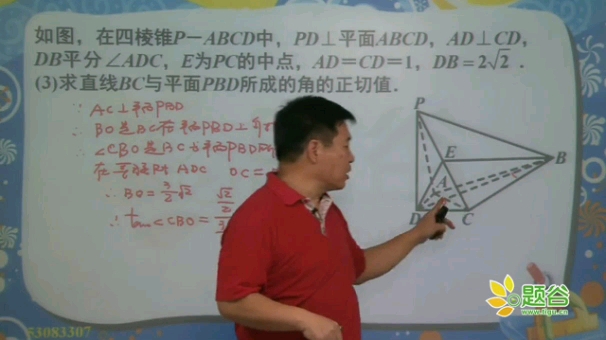 如图，在四棱锥P－ABCD中，PD⊥平面ABCD，AD⊥CD，
DB平分∠ADC，E为PC的中点，AD＝CD＝1，DB＝2√2．
(3)求直线BC与平面PBD所成的角的正切值．
∵ AC⊥平面PBD
∴ BO是BC在平面PBD上
∴ ∠CBO是BC与平面PBD所
在 Rt △ADC DC＝ √2/2
∴ BO＝3/2√2
∴ tan∠CBO＝
P
E
B
A
D
C
题谷
www.tigu.cn
53083307